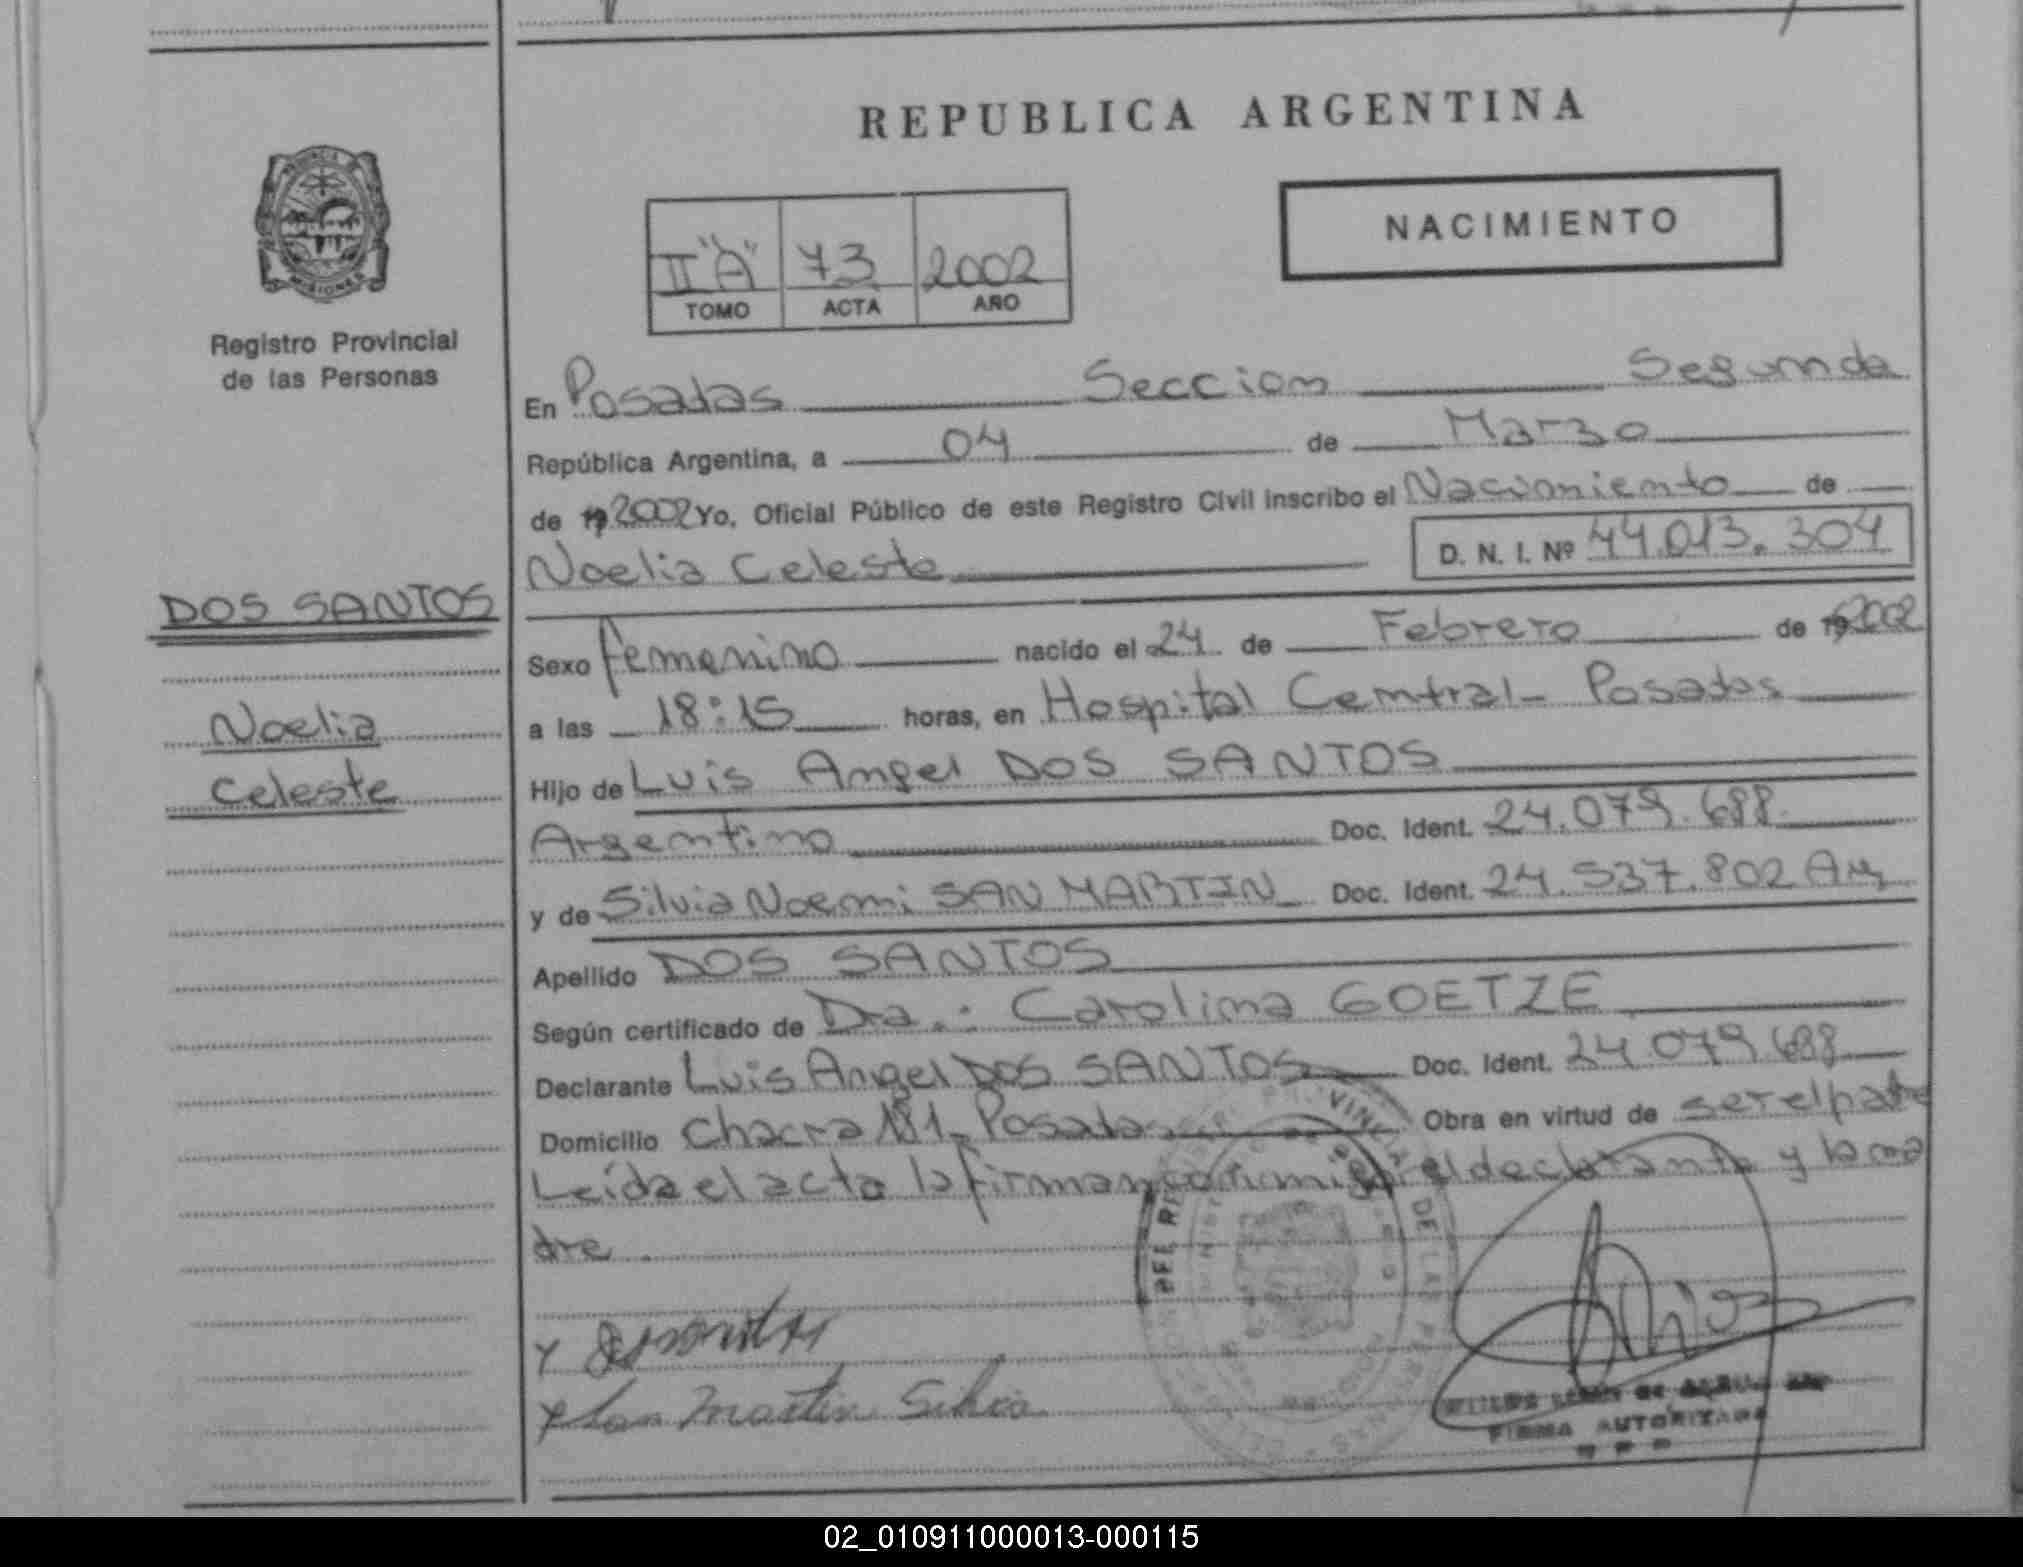 REPUBLICA ARGENTINA
NACIMIENTO
II "A" 73 2002
TOMO ACTA AÑO
Registro Provincial
de las Personas
En Posadas Seccion Segunda
República Argentina, a 04 de Marzo
de 19 2002 Yo, Oficial Público de este Registro Civil inscribo el Nacimiento de
Noelia Celeste D. N. I. Nº 44.013.304
DOS SANTOS
Noelia
Celeste
Sexo femenino nacido el 24 de Febrero de 19 2002
a las 18:15 horas, en Hospital Central - Posadas
Hijo de Luis Angel DOS SANTOS
Argentino Doc. Ident. 24.079.688.
y de Silvia Noemi SAN MARTIN Doc. Ident. 24.537.802 Arg
Apellido DOS SANTOS
Según certificado de Dra.: Carolina GOETZE
Declarante Luis Angel DOS SANTOS Doc. Ident. 24.079.688
Domicilio Chacra 181 - Posadas Obra en virtud de ser el padre
Leída el acta la firman conmigo el declarante y la ma
dre.
San Martin Silvia
FIRMA AUTORIZADA
R P P
02_010911000013-000115